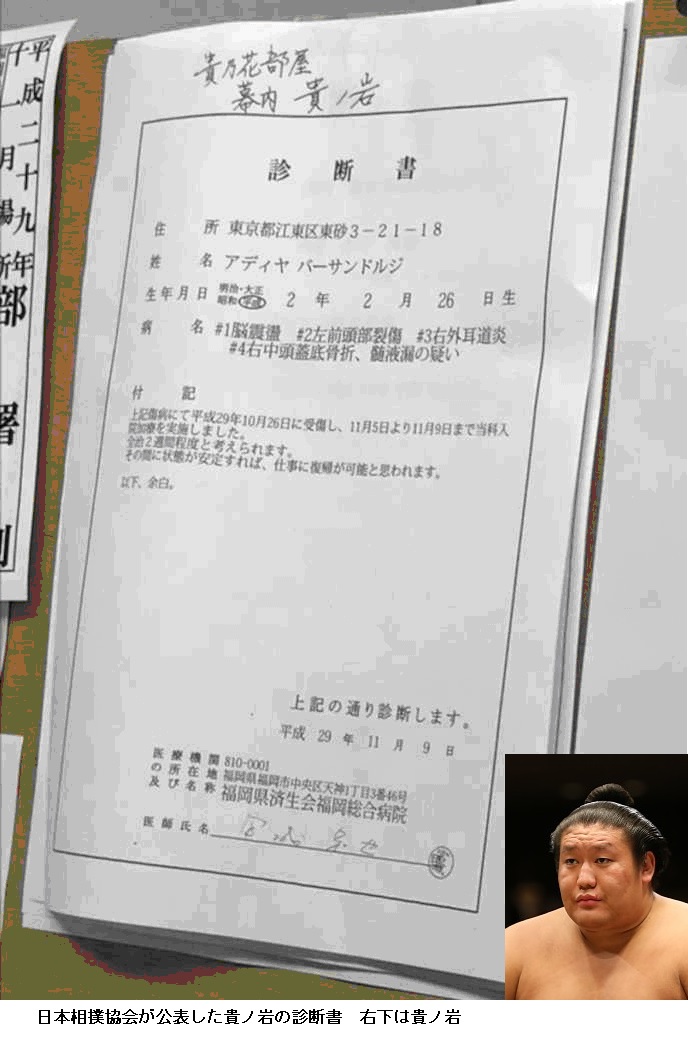 貴乃花部屋
幕内 貴ノ岩
診断書
住所 東京都江東区東砂3-21-18
姓名 アディヤ バーサンドルジ
生年月日 明治・大正 昭和 平成 2年 2月 26日生
病名 #1脳震盪 #2左前頭部裂傷 #3右外耳道炎
#4右中頭蓋底骨折、髄液漏の疑い
付記
上記傷病にて平成29年10月26日に受傷し、11月5日より11月9日まで当科入
院加療を実施しました。
全治2週間程度と考えられます。
その間に状態が安定すれば、仕事に復帰が可能と思われます。
以下、余白。
上記の通り診断します。
平成 29 年 11 月 9 日
医療機関 810-0001
の所在地 福岡県福岡市中央区天神1丁目3番46号
及び名称 福岡県済生会福岡総合病院
医師氏名
平成二十九年
十一月場所
部
日本相撲協会が公表した貴ノ岩の診断書 右下は貴ノ岩